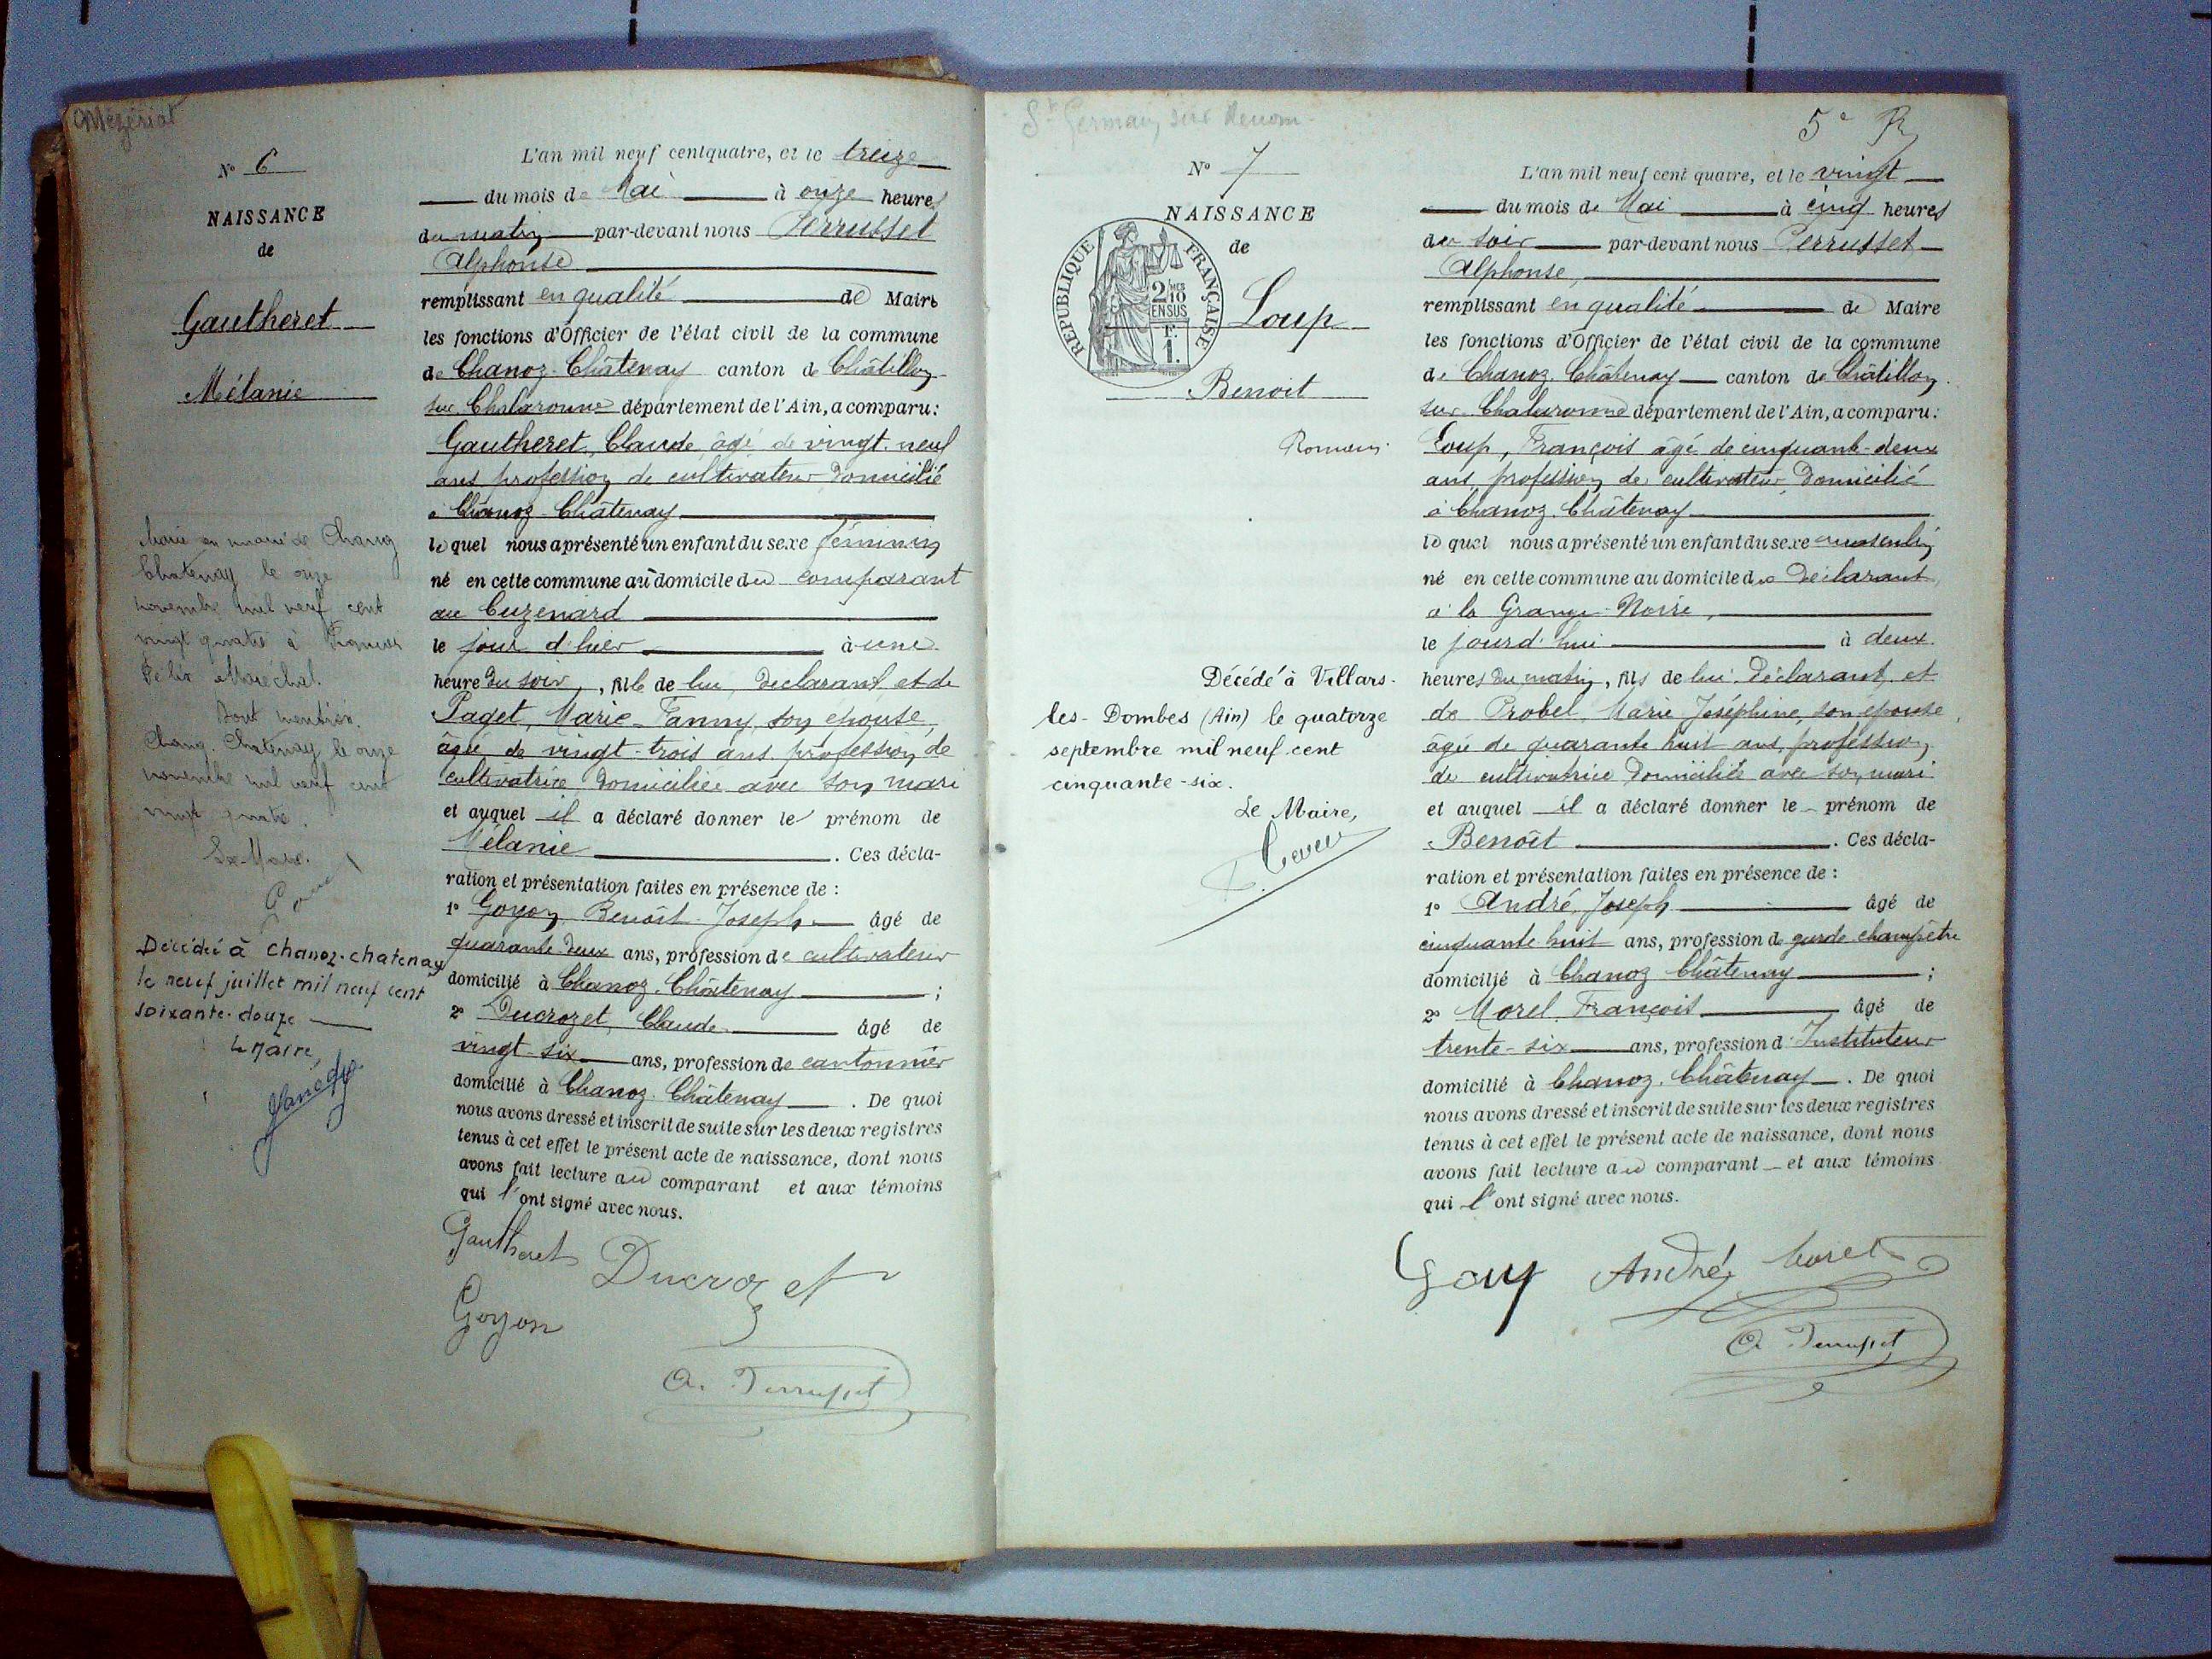 Mézériat
N° 6
NAISSANCE
de
Gautheret
Mélanie
L'an mil neuf cent quatre, et le treize
du mois de Mai à onze heures
du matin par-devant nous Perrusset
Alphonse
remplissant en qualité de Maire
les fonctions d'Officier de l'état civil de la commune
de Chanoz-Châtenay canton de Châtillon
sur Chalaronne département de l'Ain, a comparu:
Gautheret, Claude, âgé de vingt-neuf
ans profession de cultivateur domicilié
à Chanoz-Châtenay
lequel nous a présenté un enfant du sexe féminin
né en cette commune au domicile du comparant
au Cuzenard
le jour d'hier à une
heure du soir, fille de lui, déclarant, et de
Paget, Marie-Fanny, son épouse,
âgée de vingt-trois ans, profession de
cultivatrice domiciliée avec son mari
et auquel il a déclaré donner le prénom de
Mélanie. Ces décla-
ration et présentation faites en présence de :
1° Goyon Benoît-Joseph âgé de
quarante-deux ans, profession de cultivateur
domicilié à Chanoz-Châtenay ;
2° Ducrozet, Claude âgé de
vingt-six ans, profession de cantonnier
domicilié à Chanoz-Châtenay. De quoi
nous avons dressé et inscrit de suite sur les deux registres
tenus à cet effet le présent acte de naissance, dont nous
avons fait lecture au comparant et aux témoins
qui l'ont signé avec nous.
Gautheret Ducrozet
Goyon
A. Perrusset
Marié en mairie de Chanoz
Chatenay le onze
novembre mil neuf cent
vingt quatre à
Félix Maréchal.
Dont mention.
Chanoz-Chatenay le onze
novembre mil neuf cent
vingt quatre.
Le Maire.
Décédée à Chanoz-chatenay
le neuf juillet mil neuf cent
soixante-douze
Le Maire,
St Germain sur Renom
5e
N° 7
NAISSANCE
de
REPUBLIQUE FRANÇAISE
2/10 EN SUS
F.
1.
Loup
Benoit
Romans
L'an mil neuf cent quatre, et le vingt
du mois de Mai à cinq heures
du soir par-devant nous Perrusset
Alphonse,
remplissant en qualité de Maire
les fonctions d'Officier de l'état civil de la commune
de Chanoz Châtenay canton de Châtillon
sur Chalaronne département de l'Ain, a comparu:
Loup, François âgé de cinquante-deux
ans, profession de cultivateur, domicilié
à Chanoz-Châtenay
lequel nous a présenté un enfant du sexe masculin
né en cette commune au domicile du déclarant
à la Grange-Noire,
le jourd'hui à deux
heures du matin, fils de lui déclarant, et
de Probel, Marie Joséphine, son épouse,
âgée de quarante huit ans, profession
de cultivatrice domiciliée avec son mari
et auquel il a déclaré donner le prénom de
Benoît. Ces décla-
ration et présentation faites en présence de :
1° André, Joseph âgé de
cinquante huit ans, profession de garde champêtre
domicilié à Chanoz Châtenay ;
2° Morel, François âgé de
trente-six ans, profession d'Instituteur
domicilié à Chanoz-Châtenay. De quoi
nous avons dressé et inscrit de suite sur les deux registres
tenus à cet effet le présent acte de naissance, dont nous
avons fait lecture au comparant et aux témoins
qui l'ont signé avec nous.
André Morel
A. Perrusset
Décédé à Villars-
les-Dombes (Ain) le quatorze
septembre mil neuf cent
cinquante-six.
Le Maire,